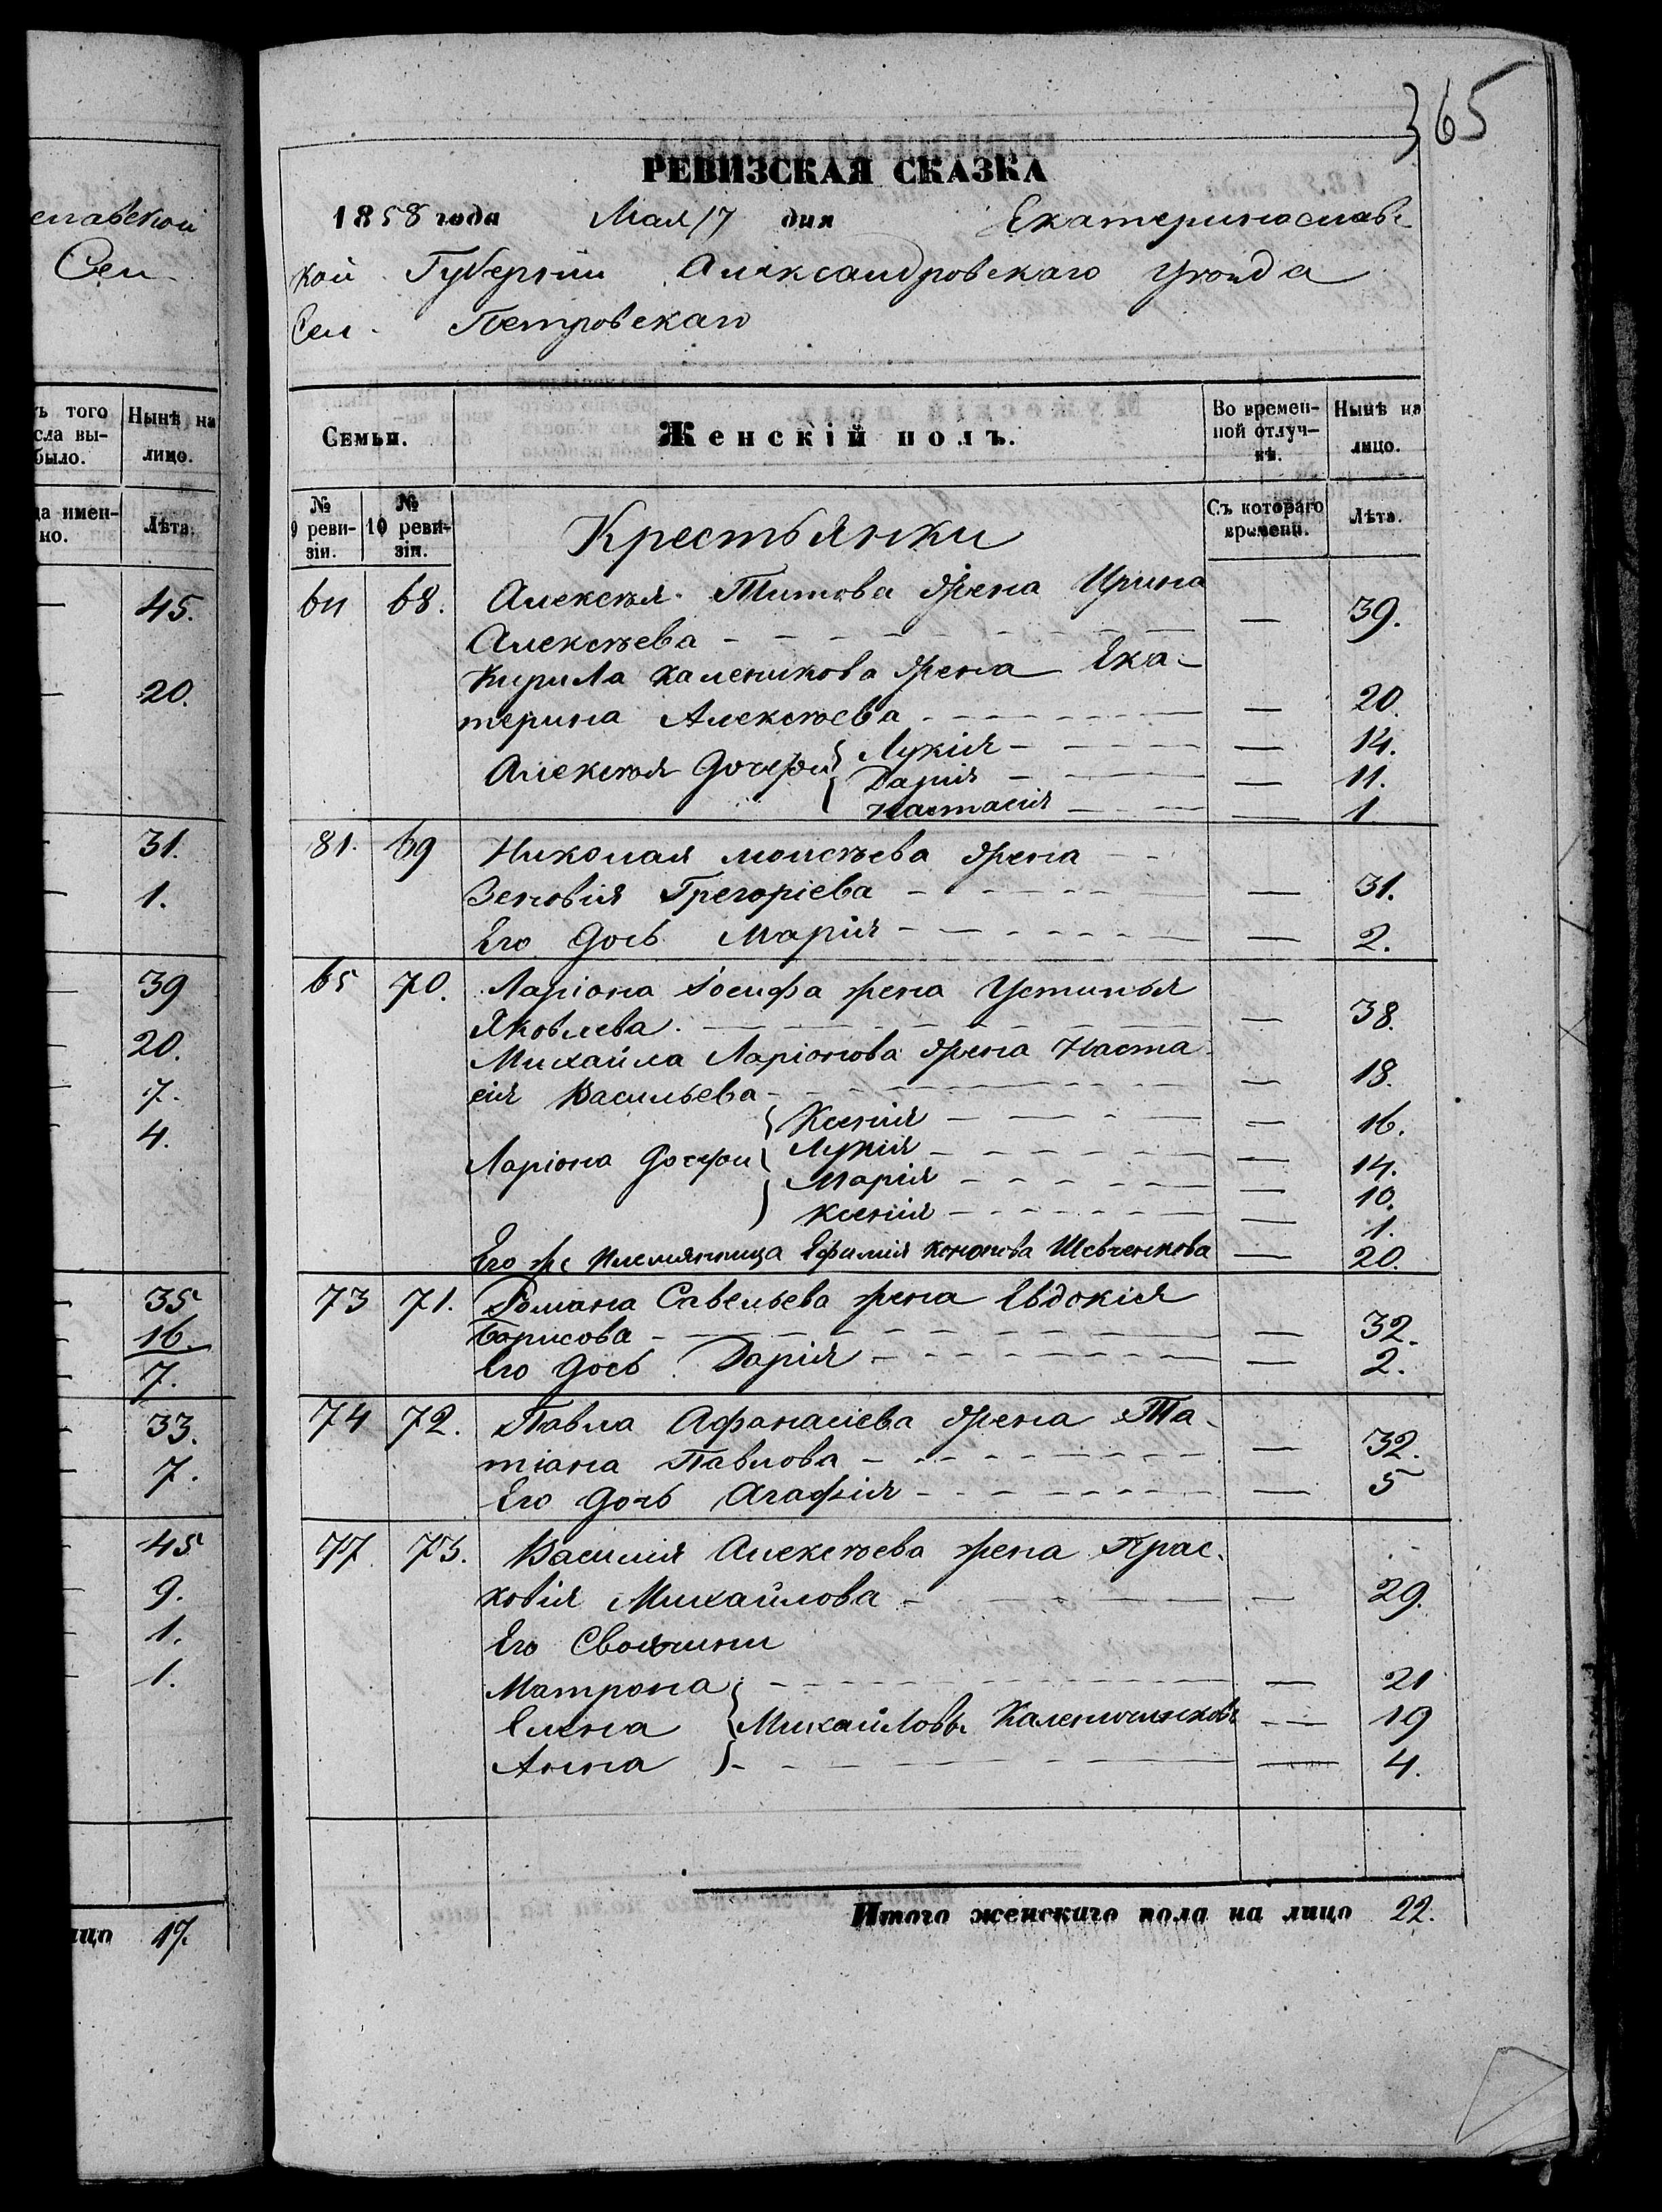 365
РЕВИЗСКАЯ СКАЗКА
1858 года Мая 17 дня Екатеринославс
кой Губерніи Александровскаго уѣзда
Сел. Петровскаго
Семьи.
Женскій полъ.
Во времен-
ной отлуч-
кѣ.
Нынѣ на
лицо.
№
9 реви-
зіи.
№
10 реви-
зіи.
Крестьянки
Съ котораго
времени.
Лѣта.
64 68. Алексѣя Титова жена Ирина
Алексѣева — 39.
Кирила Каленикова жена Ека-
терина Алексѣева — 20.
Алексѣя дочери Лукія — 14.
Дарія — 11.
Настасія — 1.
81. 69 Николая Моисѣева жена
Зеновія Грегоріева — 31.
Его дочь Марія — 2.
65 70. Ларіона Іосифа жена Устинья
Яковлева — 38.
Михайла Ларіонова жена Наста-
сія Васильева — 18.
Ксенія — 16.
Ларіона дочери Лукія — 14.
Марія — 10.
Ксенія — 1.
Его же племянница Ефимія Кононова Шевченкова — 20.
73 71. Романа Савельева жена Евдокія
Борисова — 32.
Его дочь Дарія — 2.
74 72. Павла Афанасіева жена Та-
тіана Павлова — 32.
Его дочь Агафія — 5
77. 73. Василія Алексѣева жена Прас-
ковія Михайлова — 29.
Его Своячини
Матрона — 21
Елена Михайловы Каленичинковы — 19
Анна — 4.
Итого женскаго пола на лицо 22.
славской
Сел
ъ того
сла вы-
было.
Нынѣ на
лицо.
да имен-
но.
Лѣта.
45.
20.
31.
1.
39
20.
7.
4.
35
16.
7.
33.
7.
45
9.
1.
1.
ицо 17.